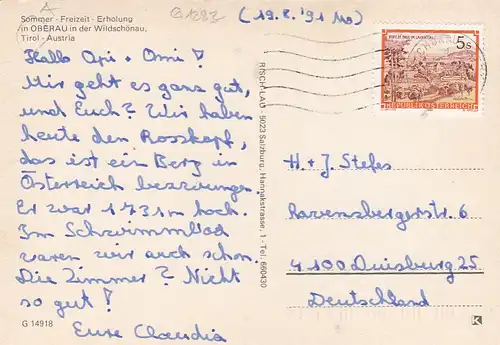 A
G1282 (19.8.'91 Mo)
Sommer - Freizeit - Erholung
in OBERAU in der Wildschönau,
Tirol - Austria
Hallo Opi + Omi!
Mir geht es ganz gut,
und Euch? Wir haben
heute den Rosskopf,
das ist ein Berg in
Österreich bezwungen.
Er war 1731m hoch.
Im Schwimmbad
waren wir auch schon.
Die Zimmer? Nicht
so gut!
Eure Claudia
G 14918
RISCH-LAU · 5023 Salzburg, Hannakstrasse, 1 - Tel. 660430
5s
REPUBLIK ÖSTERREICH
H. + J. Stefes
Ravensbergerstr. 6
4100 Duisburg 25
Deutschland
K